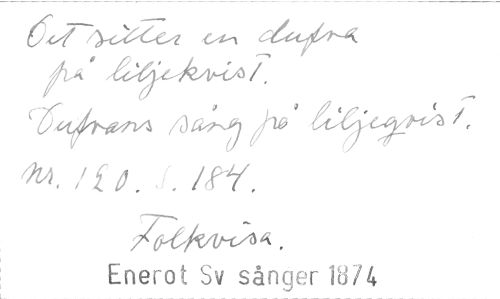 Det sitter en dufva
på liljekvist.
Dufvans sång på liljeqvist.
Nr. 120. S. 184.
Folkvisa.
Enerot Sv sånger 1874